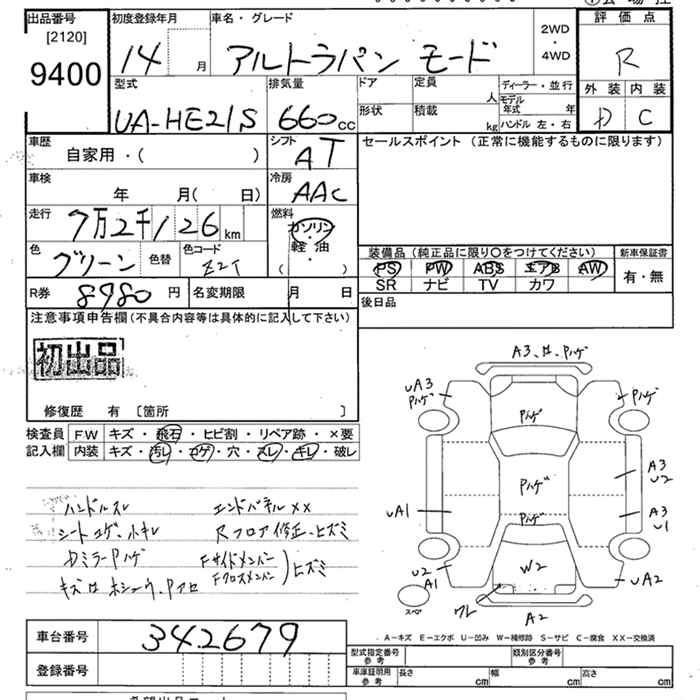 出品番号
[2120]
9400
初度登録年月
14 月
車名・グレード
アルトラパン モード
2WD
・
4WD
評価点
R
外装 内装
D C
型式
UA-HE21S
排気量
660cc
ドア
定員
人
形状
積載
kg
ディーラー・並行
モデル年式 年
ハンドル 左・右
車歴
自家用・( )
シフト
AT
車検
年 月(日)
冷房
AAC
走行
7万2千126km
燃料
ガソリン
・
軽油
・
( )
色
グリーン
色替
色コード
Z2T
R券
8980円
名変期限
月 日
セールスポイント (正常に機能するものに限ります)
装備品 (純正品に限り〇をつけてください)
PS PW ABS エアB AW
SR ナビ TV カワ
新車保証書
有・無
後日品
注意事項申告欄(不具合内容等は具体的に記入して下さい)
初出品
修復歴 有 [箇所 ]
検査員
記入欄
FW キズ・飛石・ヒビ割・リペア跡・×要
内装 キズ・汚レ・コゲ・穴・スレ・キレ・破レ
ハンドルスレ
シートコゲ、小キレ
Dミラー Pハゲ
エンドパネルXX
Rフロア修正、ヒズミ
Fサイドメンバー
Fクロスメンバー
ヒズミ
A3
Pハゲ
UA3
Pハゲ
Pハゲ
Pハゲ
Pハゲ
Pハゲ
A3
U2
A3
U1
UA1
U2
A1
W2
UA2
ワレ
A2
スペア
A-キズ E-エクボ U-凹み W-補修跡 S-サビ C-腐食 XX-交換済
車台番号
342679
登録番号
型式指定番号
参考
類別区分番号
参考
車庫証明用
参考
長さ cm
幅 cm
高さ cm